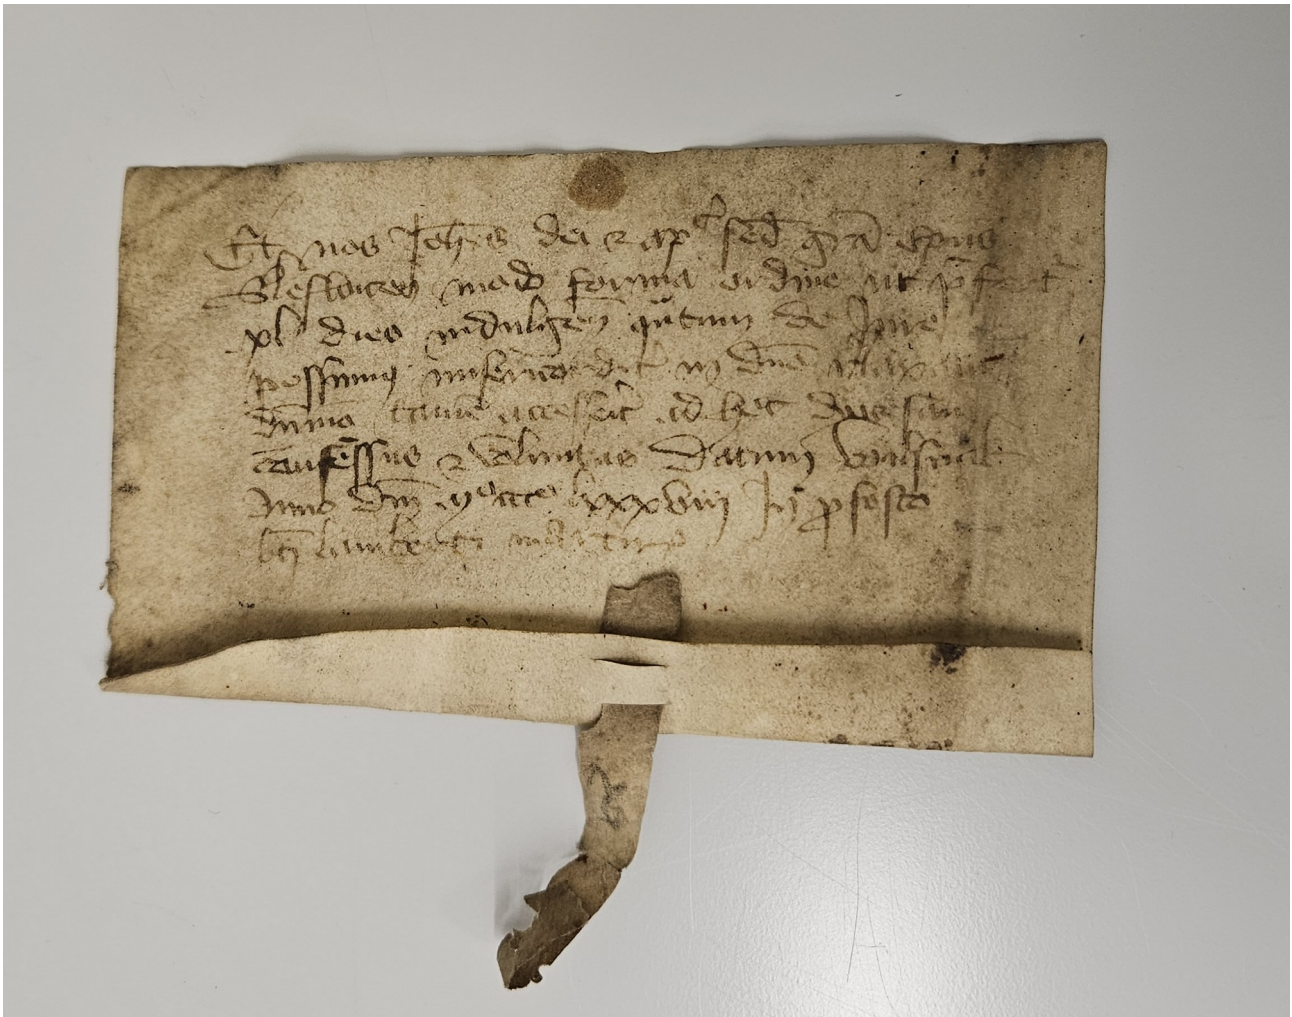 Et nos Joh̅es dei ⁊ ap̅ce sed̅ gr̅a ep̅us
Sleswicen̅ modo forma ordine ut p̅fert᷑
xl dies indulgen̅ q̅ntum de Jure
possumus misericordit᷑ in dn̅o
dn̅mo tame̅ accesserit ad hec dyocesan
consessus ⁊ voluntas Datum
Anno dn̅i Mº cccº lxxxviij Jn p̅festo
bt̅i lamberti martiris